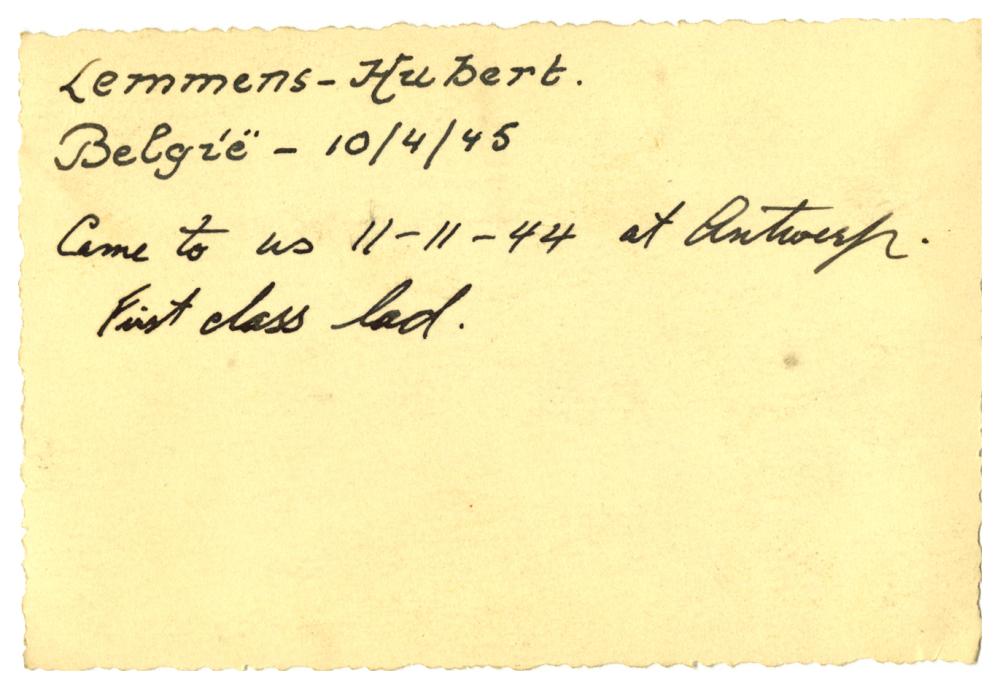 Lemmens-Hubert.
België - 10/4/45
Came to us 11-11-44 at Antwerp.
First class lad.